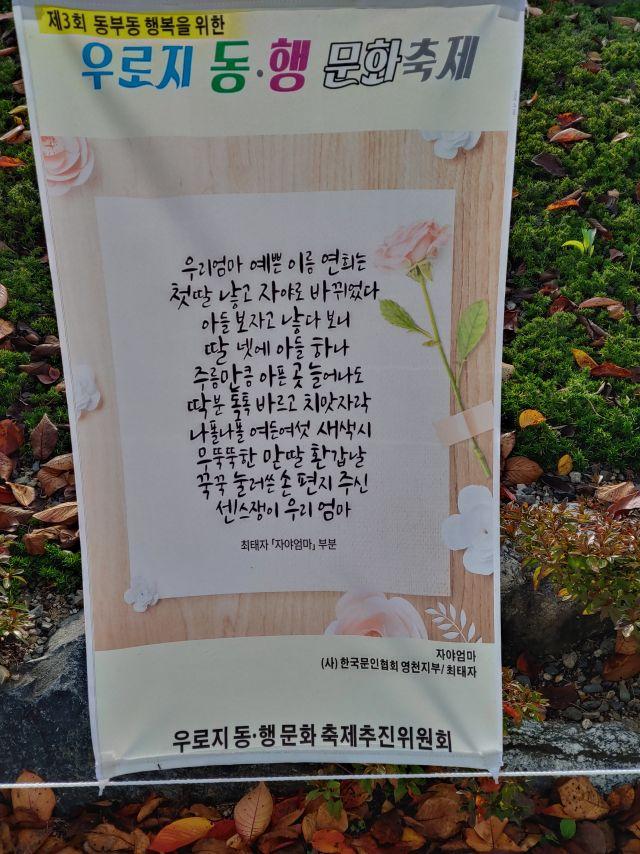 제3회 동부동 행복을 위한
우로지 동·행 문화축제
우리엄마 예쁜 이름 연희는
첫딸 낳고 자야로 바뀌었다
아들 보자고 낳다 보니
딸 넷에 아들 하나
주름만큼 아픈 곳 늘어나도
딱분 톡톡 바르고 치맛자락
나풀나풀 여든여섯 새색시
우뚝뚝한 맏딸 환갑날
꾹꾹 눌러쓴 손 편지 주신
센스쟁이 우리 엄마
최태자 「자야엄마」 부분
자야엄마
(사) 한국문인협회 영천지부/ 최태자
우로지 동·행 문화 축제추진위원회